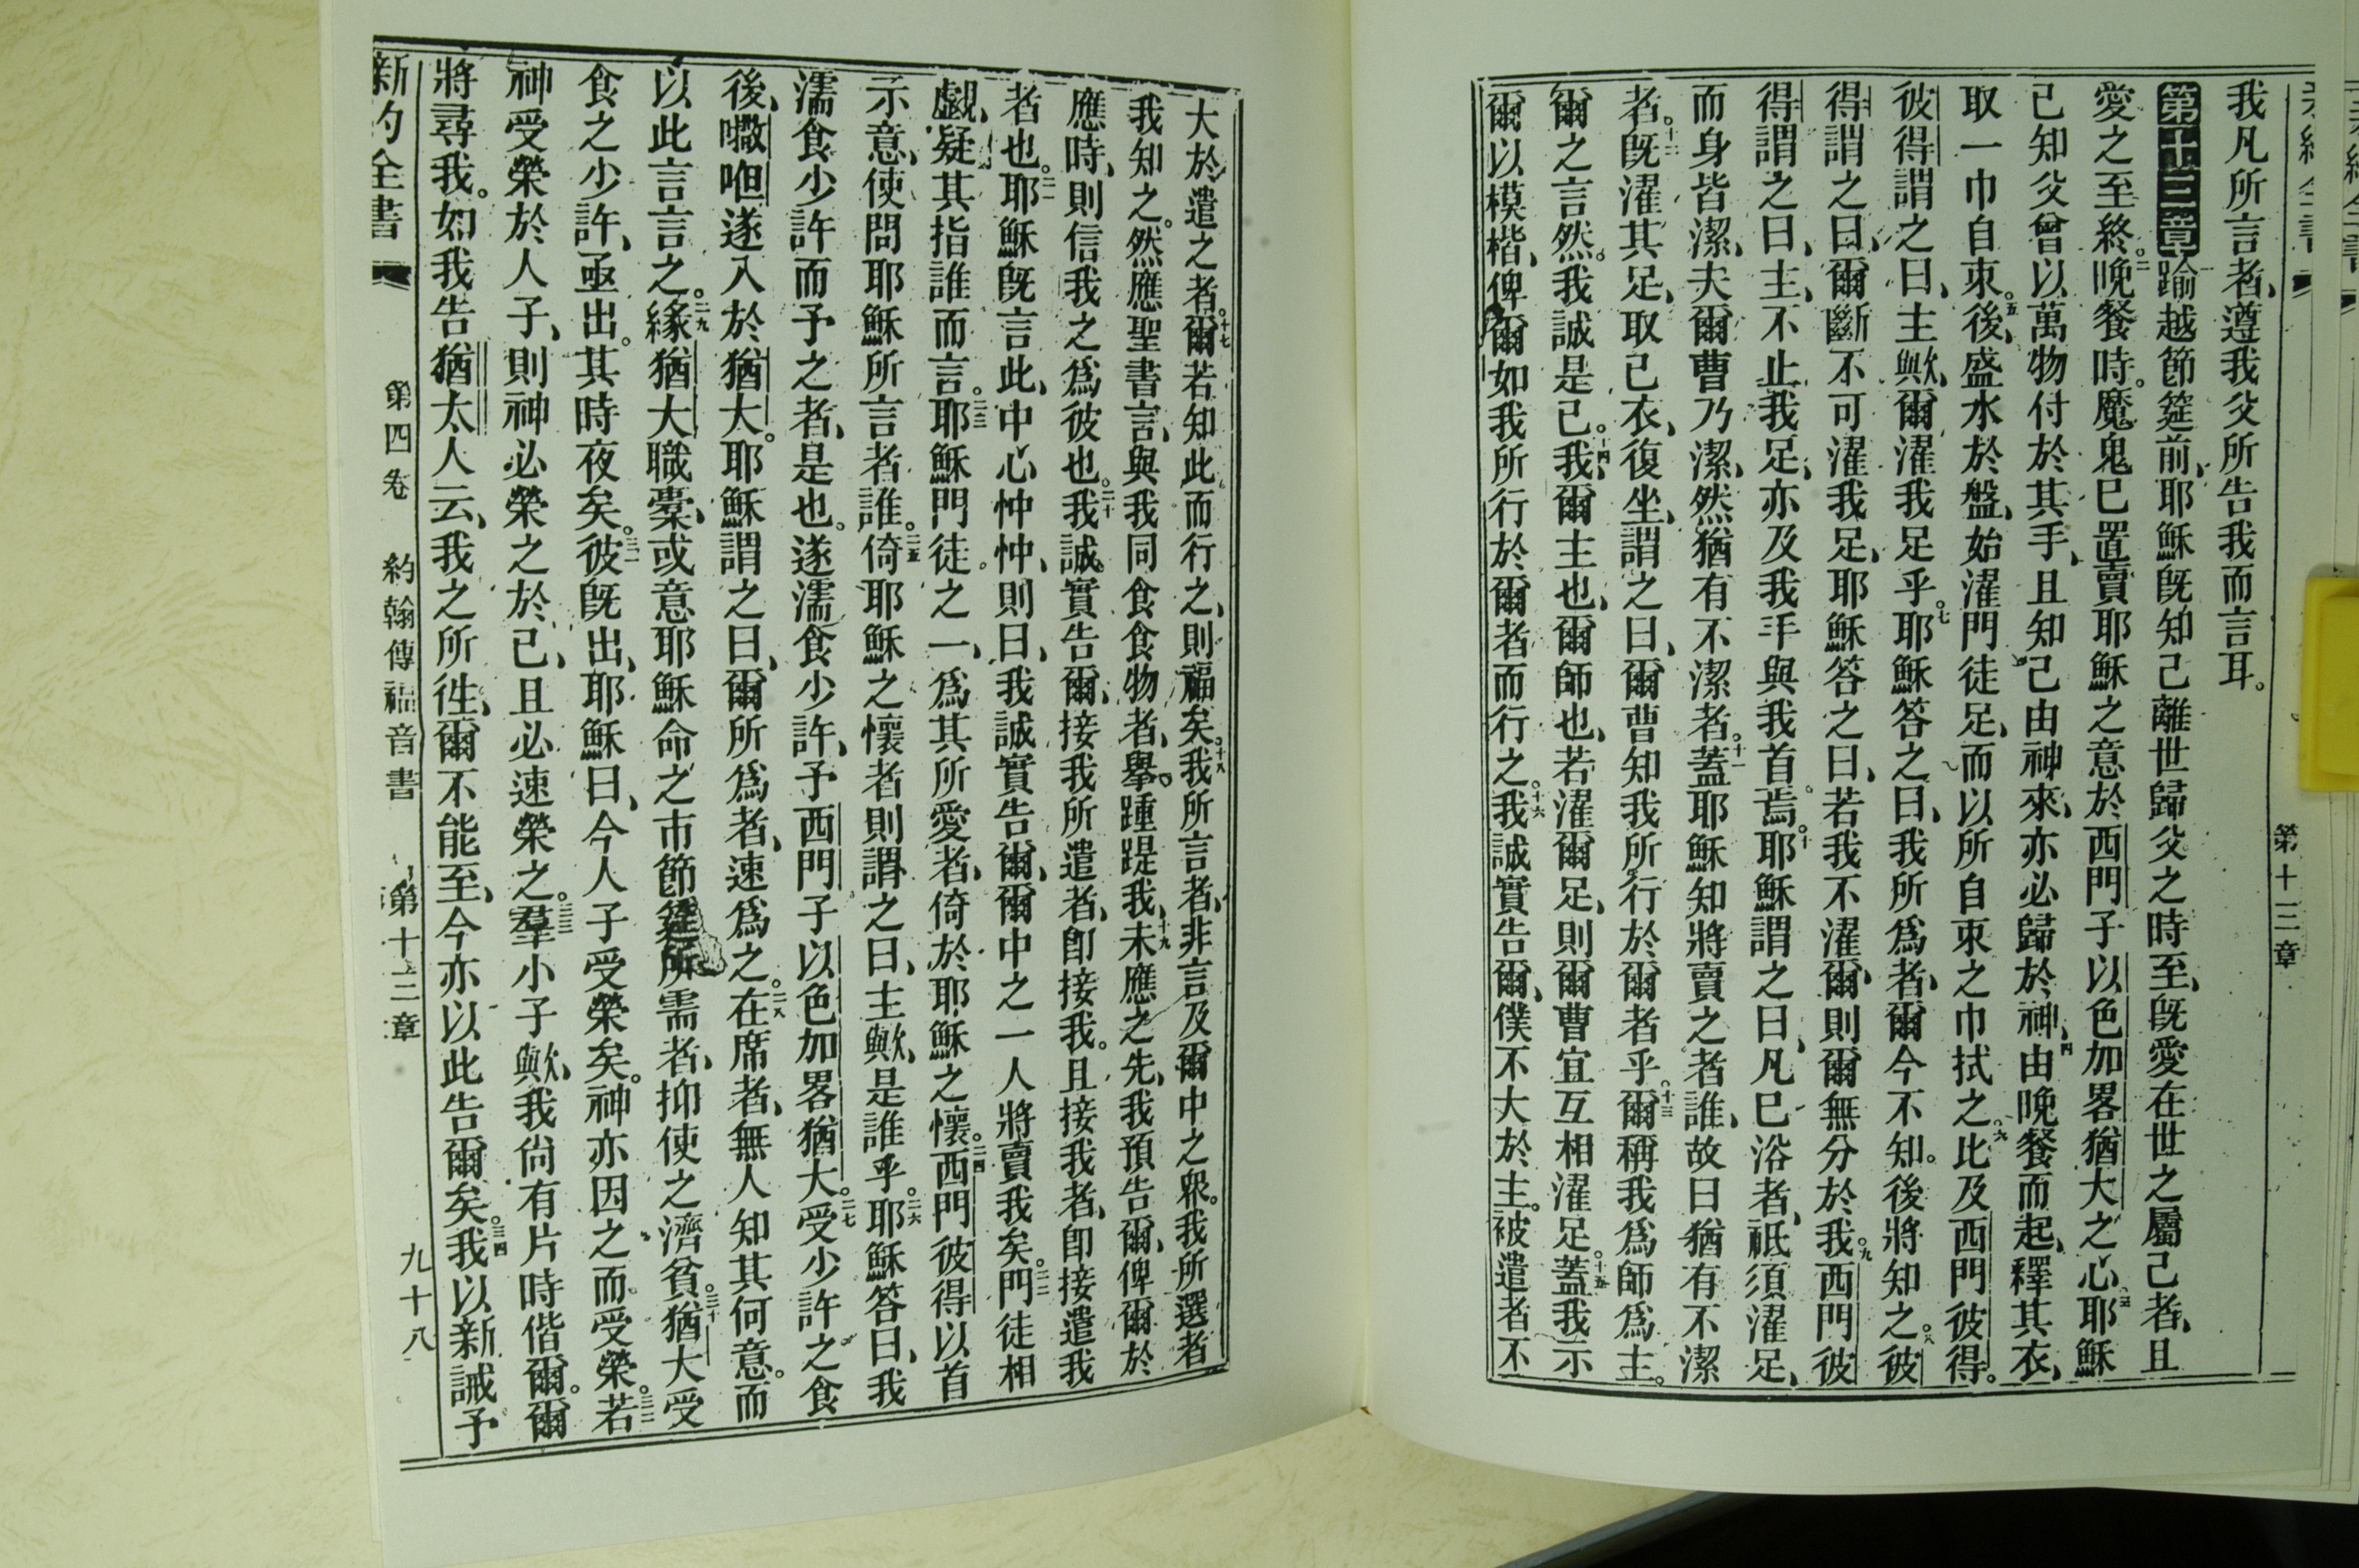 我凡所言者、遵我父所告我而言耳。
第十三章 踰越節筵前、耶穌旣知己離世歸父之時至、旣愛在世之屬己者、且
愛之至終。二晚餐時。魔鬼已置賣耶穌之意於西門子以色加畧猶大之心。三耶穌
已知父曾以萬物付於其手、且知己由神來、亦必歸於神、四由晚餐而起、釋其衣、
取一巾自束。五後、盛水於盤、始濯門徒足、而以所自束之巾拭之。六比及西門彼得。
彼得謂之曰、主歟、爾濯我足乎。七耶穌答之曰、我所爲者、爾今不知。後將知之。八彼
得謂之曰、爾斷不可濯我足、耶穌答之曰、若我不濯爾、則爾無分於我。九西門彼
得謂之曰、主、不止我足、亦及我手與我首焉。十耶穌謂之曰、凡已浴者、祗須濯足、
而身皆潔、夫爾曹乃潔、然猶有不潔者。十一蓋耶穌知將賣之者誰、故曰猶有不潔
者。十二旣濯其足、取己衣、復坐、謂之曰、爾曹知我所行於爾者乎。十三爾稱我爲師爲主。
爾之言然。我誠是已。十四我爾主也、爾師也、若濯爾足、則爾曹宜互相濯足。十五蓋我示
爾以模楷、俾爾如我所行於爾者而行之。十六我誠實告爾、僕不大於主。被遣者不
第十三章
大於遣之者。十七爾若知此而行之、則福矣。十八我所言者、非言及爾中之衆。我所選者
我知之。然應聖書言、與我同食食物者、舉踵踶我、十九未應之先、我預告爾、俾爾於
應時、則信我之爲彼也。二十我誠實告爾、接我所遣者、卽接我。且接我者、卽接遣我
者也。二一耶穌旣言此、中心忡忡、則曰、我誠實告爾、爾中之一人將賣我矣。二二門徒相
覷、疑其指誰而言。二三耶穌門徒之一、爲其所愛者、倚於耶穌之懷。二四西門彼得以首
示意、使問耶穌所言者誰。二五倚耶穌之懷者則謂之曰、主歟、是誰乎。二六耶穌答曰、我
濡食少許而予之者、是也。遂濡食少許、予西門子以色加畧猶大。二七受少許之食
後、㘔呾遂入於猶大。耶穌謂之曰、爾所爲者、速爲之。二八在席者、無人知其何意。而
以此言言之。二九緣猶大職橐、或意耶穌命之市節筵所需者、抑使之濟貧。三十猶大受
食之少許、亟出。其時夜矣。三一彼旣出、耶穌曰、今人子受榮矣。神亦因之而受榮。三二若
神受榮於人子、則神必榮之於己、且必速榮之。三三羣小子歟、我尙有片時偕爾。爾
將尋我。如我告猶太人云、我之所徃、爾不能至、今亦以此告爾矣。三四我以新誡予
新約全書 第四卷 約翰傳福音書 第十三章 九十八